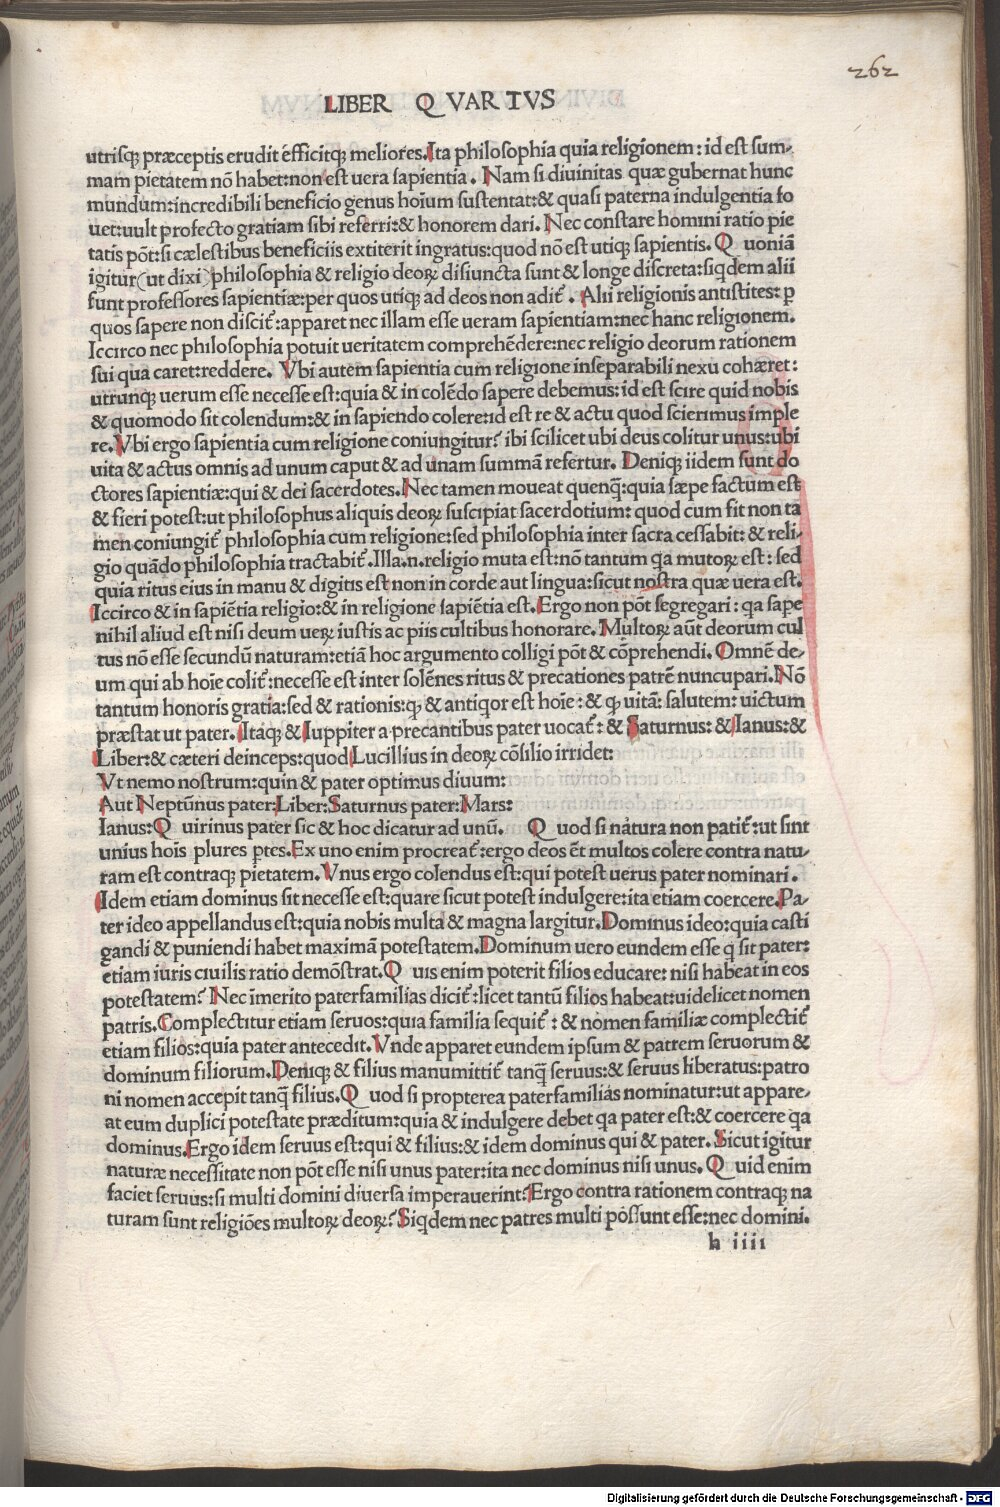 262
LIBER QVARTVS
utrisq; præceptis erudit efficitq; meliores. Ita philosophia quia religionem: id est sum-
mam pietatem nō habet: non est uera sapientia. Nam si diuinitas quæ gubernat hunc
mundum: incredibili beneficio genus hoīum sustentat: & quasi paterna indulgentia fo
uet: uult profecto gratiam sibi referri: & honorem dari. Nec constare homini ratio pie
tatis pōt: si cælestibus beneficiis extiterit ingratus: quod nō est utiq; sapientis. Quoniā
igitur (ut dixi) philosophia & religio deoꝝ disiuncta sunt & longe discreta: siqdem alii
sunt professores sapientiæ: per quos utiq; ad deos non adit᷑. Alii religionis antistites: ꝑ
quos sapere non discit᷑: apparet nec illam esse ueram sapientiam: nec hanc religionem.
Iccirco nec philosophia potuit ueritatem comprehēdere: nec religio deorum rationem
sui qua caret: reddere. Vbi autem sapientia cum religione inseparabili nexu cohæret:
utrunq; uerum esse necesse est: quia & in colēdo sapere debemus: id est scire quid nobis
& quomodo sit colendum: & in sapiendo colere: id est re & actu quod scierimus imple
re. Vbi ergo sapientia cum religione coniungitur? ibi scilicet ubi deus colitur unus: ubi
uita & actus omnis ad unum caput & ad unam summā refertur. Deniq; iidem sunt do
ctores sapientiæ: qui & dei sacerdotes. Nec tamen moueat quenq̄: quia sæpe factum est
& fieri potest: ut philosophus aliquis deoꝝ suscipiat sacerdotium: quod cum fit non ta
men coniungit᷑ philosophia cum religione: sed philosophia inter sacra cessabit: & reli-
gio quādo philosophia tractabit᷑. Illa .n. religio muta est: nō tantum qa mutoꝝ est: sed
quia ritus eius in manu & digitis est non in corde aut lingua: sicut nostra quæ uera est.
Iccirco & in sapiētia religio: & in religione sapiētia est. Ergo non pōt segregari: qa sape
nihil aliud est nisi deum ueꝝ iustis ac piis cultibus honorare. Multoꝝ aūt deorum cul
tus nō esse secundū naturam: etiā hoc argumento colligi pōt & cōprehendi. Omnē de-
um qui ab hoīe colit᷑: necesse est inter solēnes ritus & precationes patrē nuncupari. Nō
tantum honoris gratia: sed & rationis: q; & antiqor est hoīe: & q; uitā: salutem: uictum
præstat ut pater. Itaq; & Iuppiter a precantibus pater uocat᷑: & Saturnus: & Ianus: &
Liber: & cæteri deinceps: quod Lucillius in deoꝝ cōsilio irridet:
Vt nemo nostrum: quin & pater optimus diuum:
Aut Neptūnus pater: Liber: Saturnus pater: Mars:
Ianus: Quirinus pater sic & hoc dicatur ad unū. Quod si natura non patit᷑: ut sint
unius hoīs plures p̄tes. Ex uno enim procreat᷑: ergo deos ēt multos colere contra natu-
ram est contraq; pietatem. Vnus ergo colendus est: qui potest uerus pater nominari.
Idem etiam dominus sit necesse est: quare sicut potest indulgere: ita etiam coercere. Pa-
ter ideo appellandus est: quia nobis multa & magna largitur. Dominus ideo: quia casti
gandi & puniendi habet maximā potestatem. Dominum uero eundem esse q sit pater:
etiam iuris ciuilis ratio demōstrat. Quis enim poterit filios educare: nisi habeat in eos
potestatem? Nec īmerito paterfamilias dicit᷑: licet tantū filios habeat: uidelicet nomen
patris. Complectitur etiam seruos: quia familia sequit᷑: & nomen familiæ complectit᷑
etiam filios: quia pater antecedit. Vnde apparet eundem ipsum & patrem seruorum &
dominum filiorum. Deniq; & filius manumittit᷑ tanq̄ seruus: & seruus liberatus: patro
ni nomen accepit tanq̄ filius. Quod si propterea paterfamiliás nominatur: ut appare-
at eum duplici potestate præditum: quia & indulgere debet qa pater est: & coercere qa
dominus. Ergo idem seruus est: qui & filius: & idem dominus qui & pater. Sicut igitur
naturæ necessitate non pōt esse nisi unus pater: ita nec dominus nisi unus. Quid enim
faciet seruus: si multi domini diuersa imperauerint? Ergo contra rationem contraq; na
turam sunt religiōes multoꝝ deoꝝ? Siqdem nec patres multi possunt esse: nec domini.
h iiii
Digitalisierung gefördert durch die Deutsche Forschungsgemeinschaft - DFG